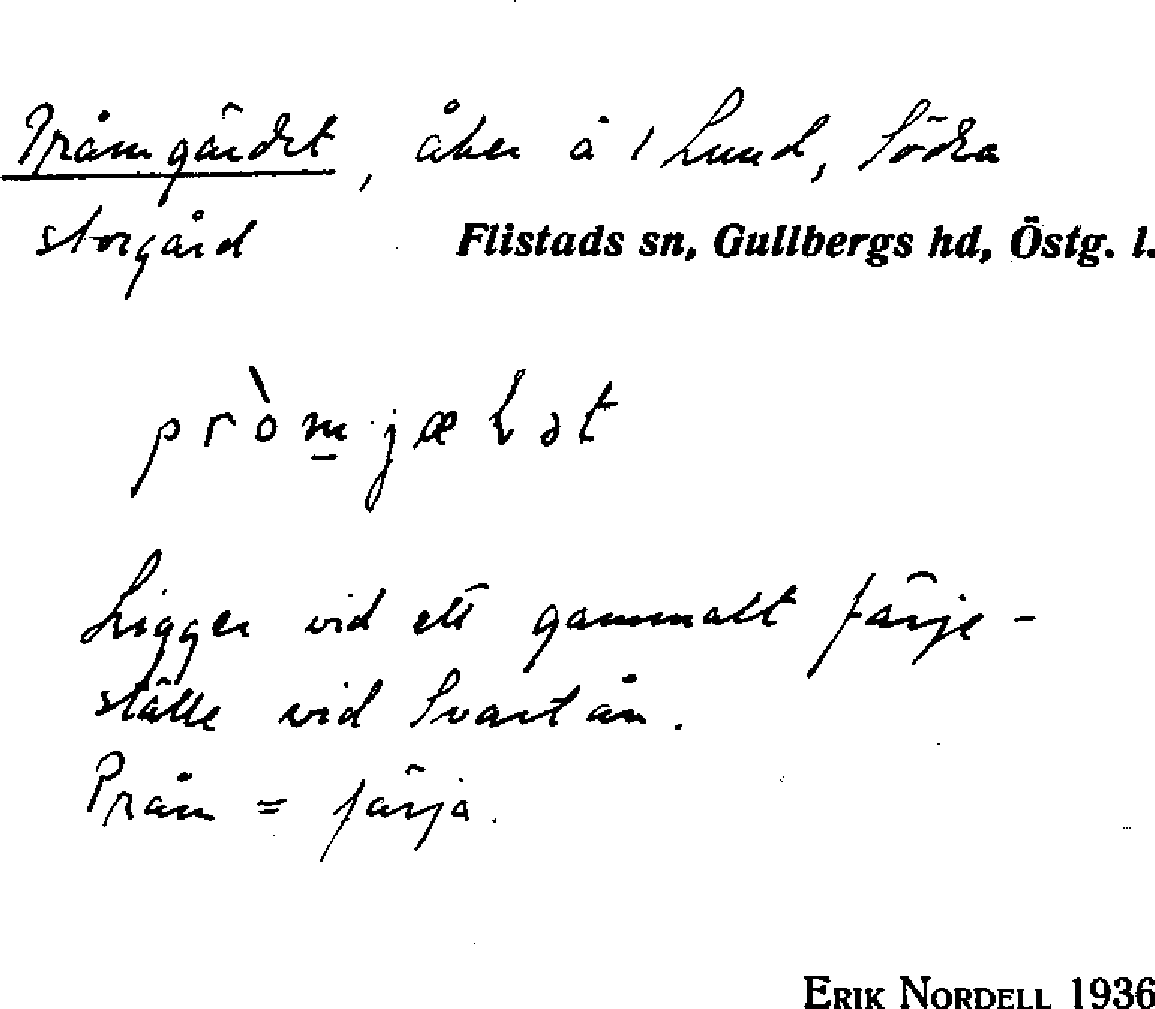 Pråmgärdet, åker å 1 Lund, Södra
storgård Flistads sn, Gullbergs hd, Östg. l.
Ligger vid ett gammalt färje-
ställe vid Svartån.
Pråm = färja.
ERIK NORDELL 1936